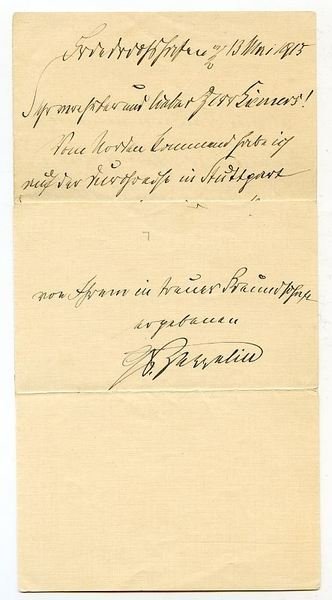 Friedrichshafen a/B 13 Mai 1915
Sehr verehrter und lieber Herr Kiemers!
Vom Norden kommend habe ich
auf der Durchreise in Stuttgart
von Ihrem in treuer Freundschaft
ergebenen
Gf. Zeppelin